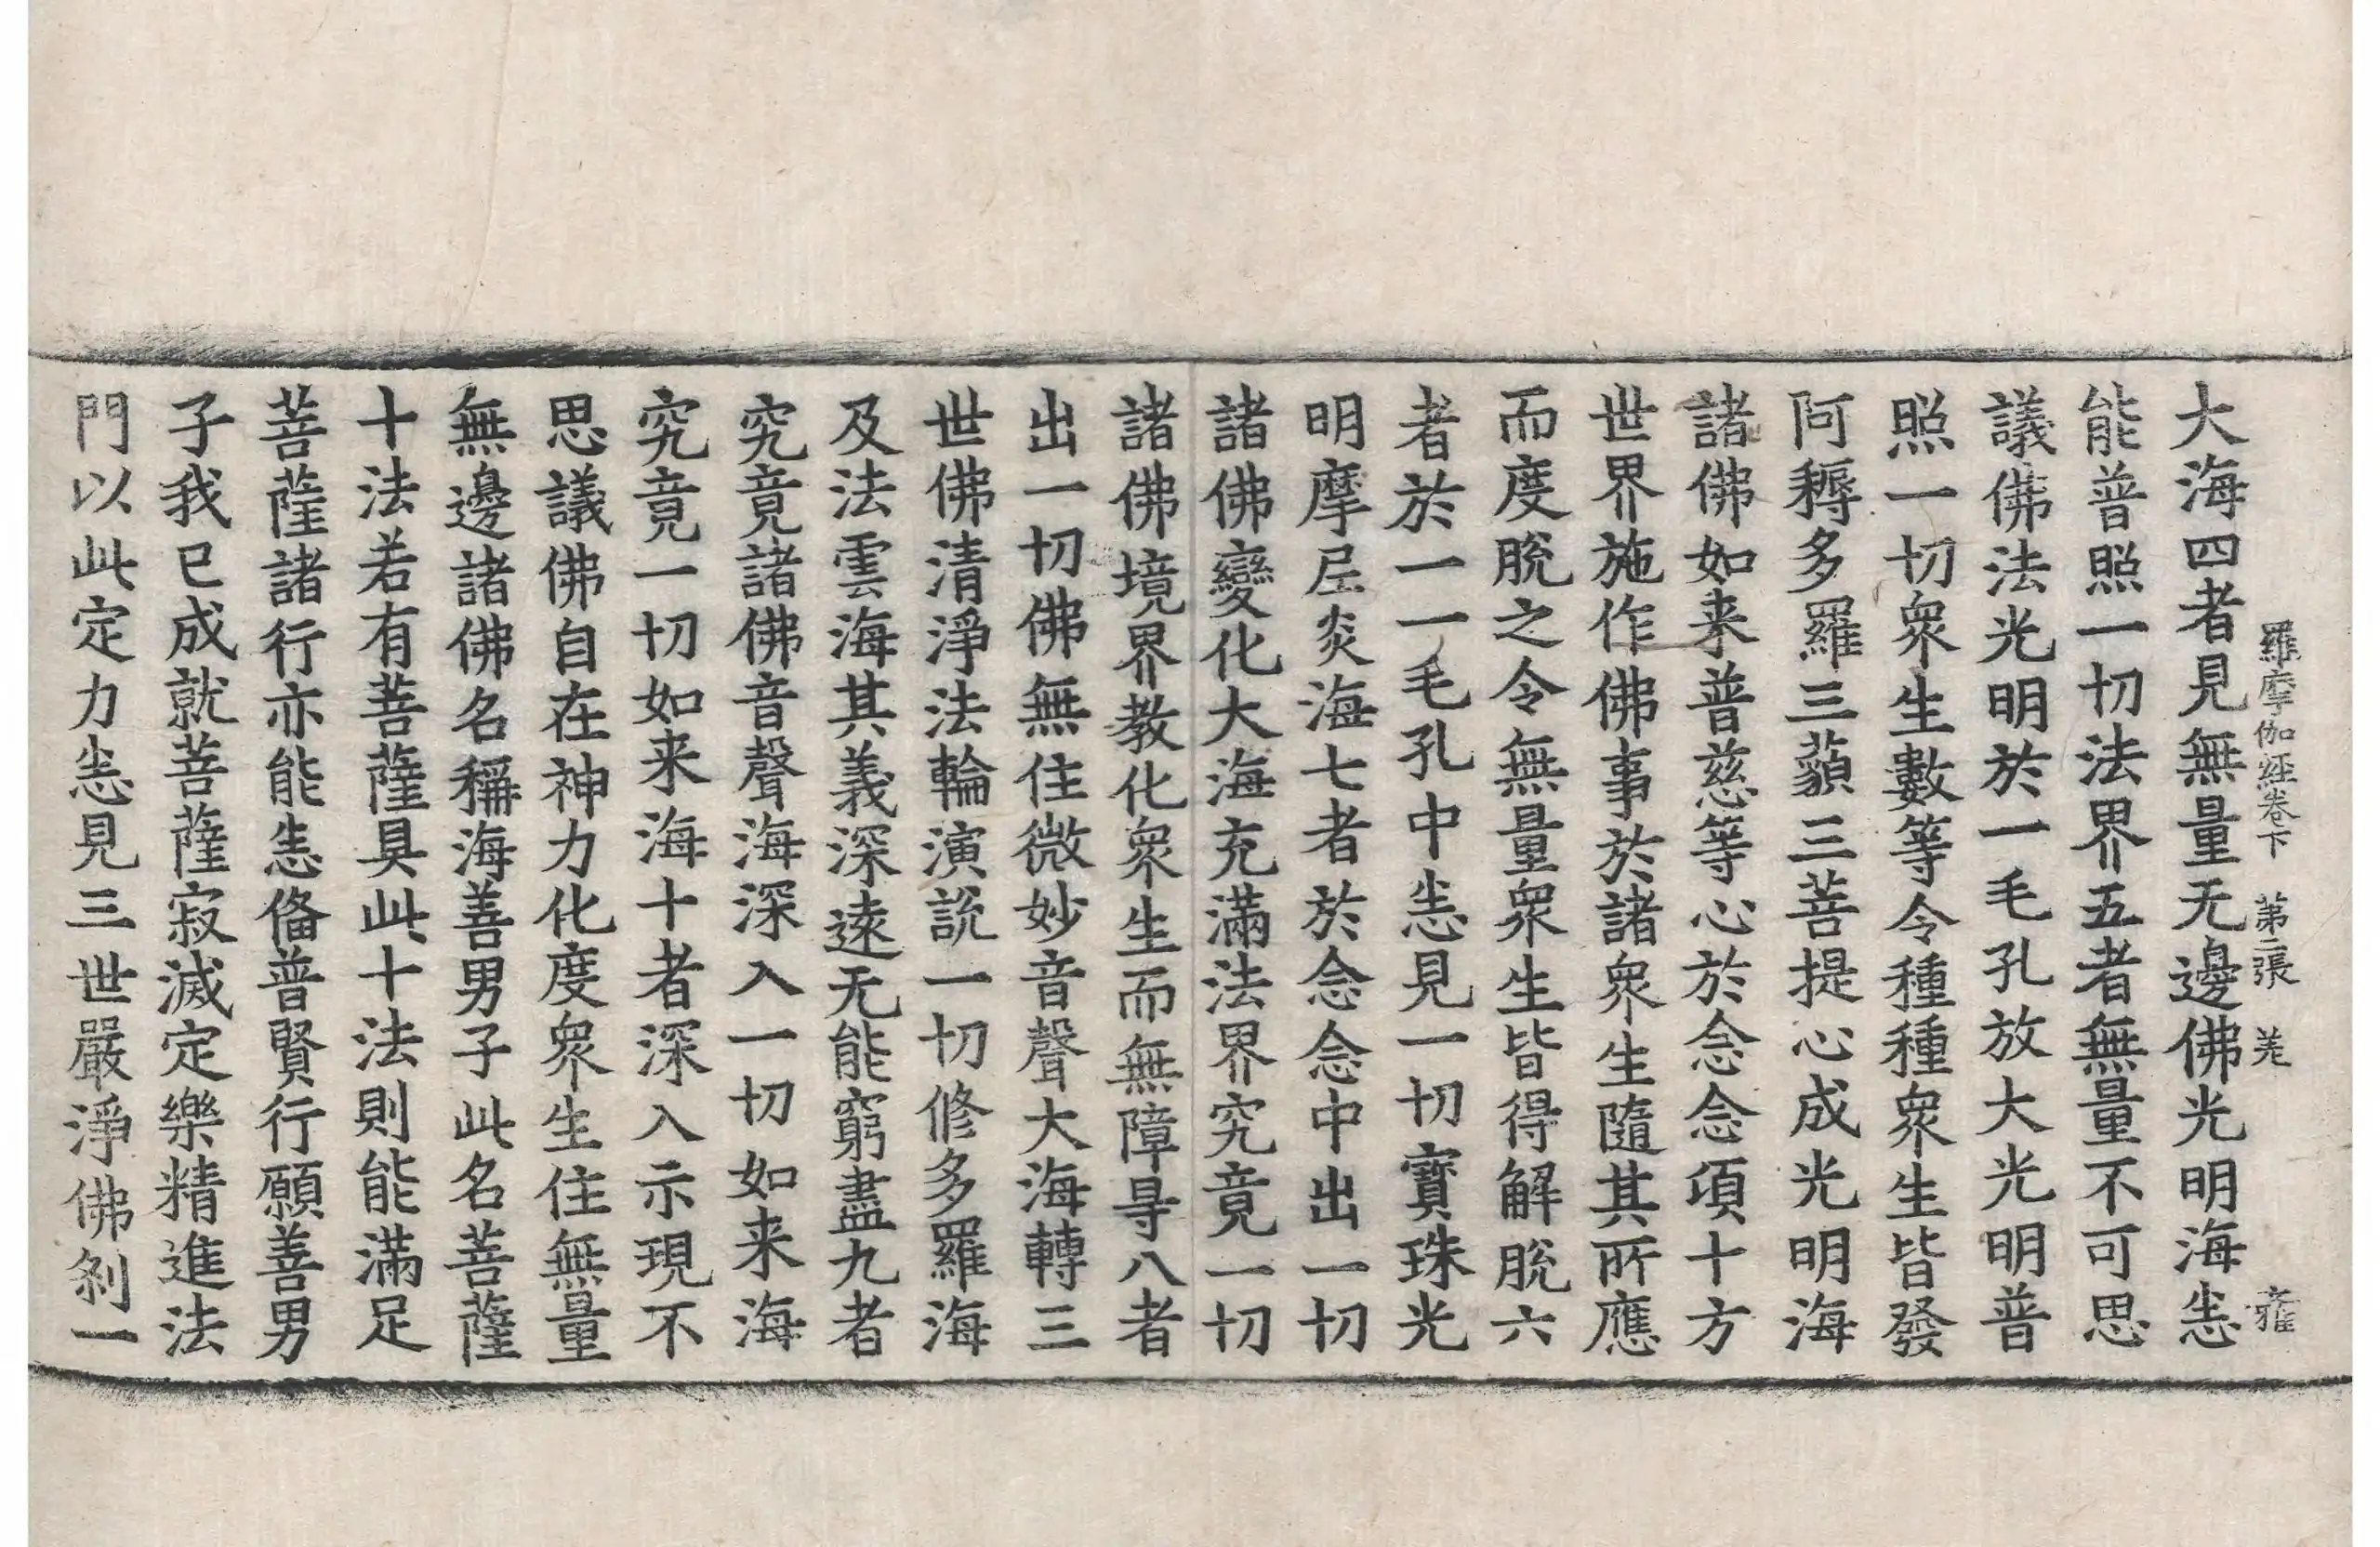 羅摩伽經卷下 第二張 羌 雍
大海四者見無量无邊佛光明海恚
能普照一切法界五者無量不可思
議佛法光明於一毛孔放大光明普
照一切衆生數等令種種衆生皆發
阿耨多羅三藐三菩提心成光明海
諸佛如来普慈等心於念念項十方
世界施作佛事於諸衆生隨其所應
而度脫之令無量衆生皆得解脫六
者於一一毛孔中恚見一切寶珠光
明摩尼炎海七者於念念中出一切
諸佛變化大海充滿法界究竟一切
諸佛境界教化衆生而無障㝵八者
出一切佛無住微妙音聲大海轉三
世佛清淨法輪演說一切修多羅海
及法雲海其義深遠无能窮盡九者
究竟諸佛音聲海深入一切如来海
究竟一切如来海十者深入示現不
思議佛自在神力化度衆生住無量
無邊諸佛名稱海善男子此名菩薩
十法若有菩薩具此十法則能滿足
菩薩諸行亦能恚俻普賢行願善男
子我已成就菩薩寂滅定樂精進法
門以此定力恚見三世嚴淨佛刹一